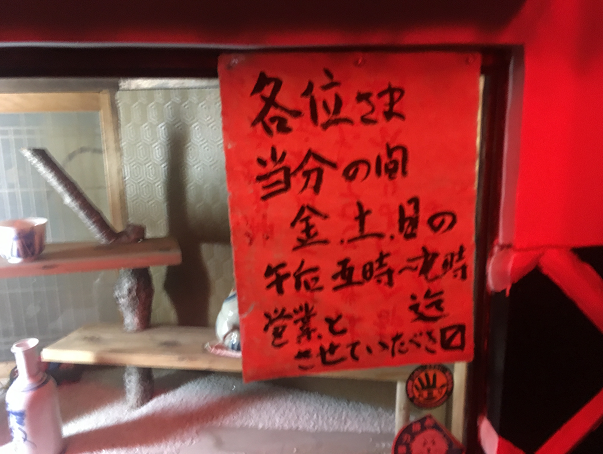 各位さま
当分の間
金.土.日の
午后五時〜時
迄
営業と
させていただき〼